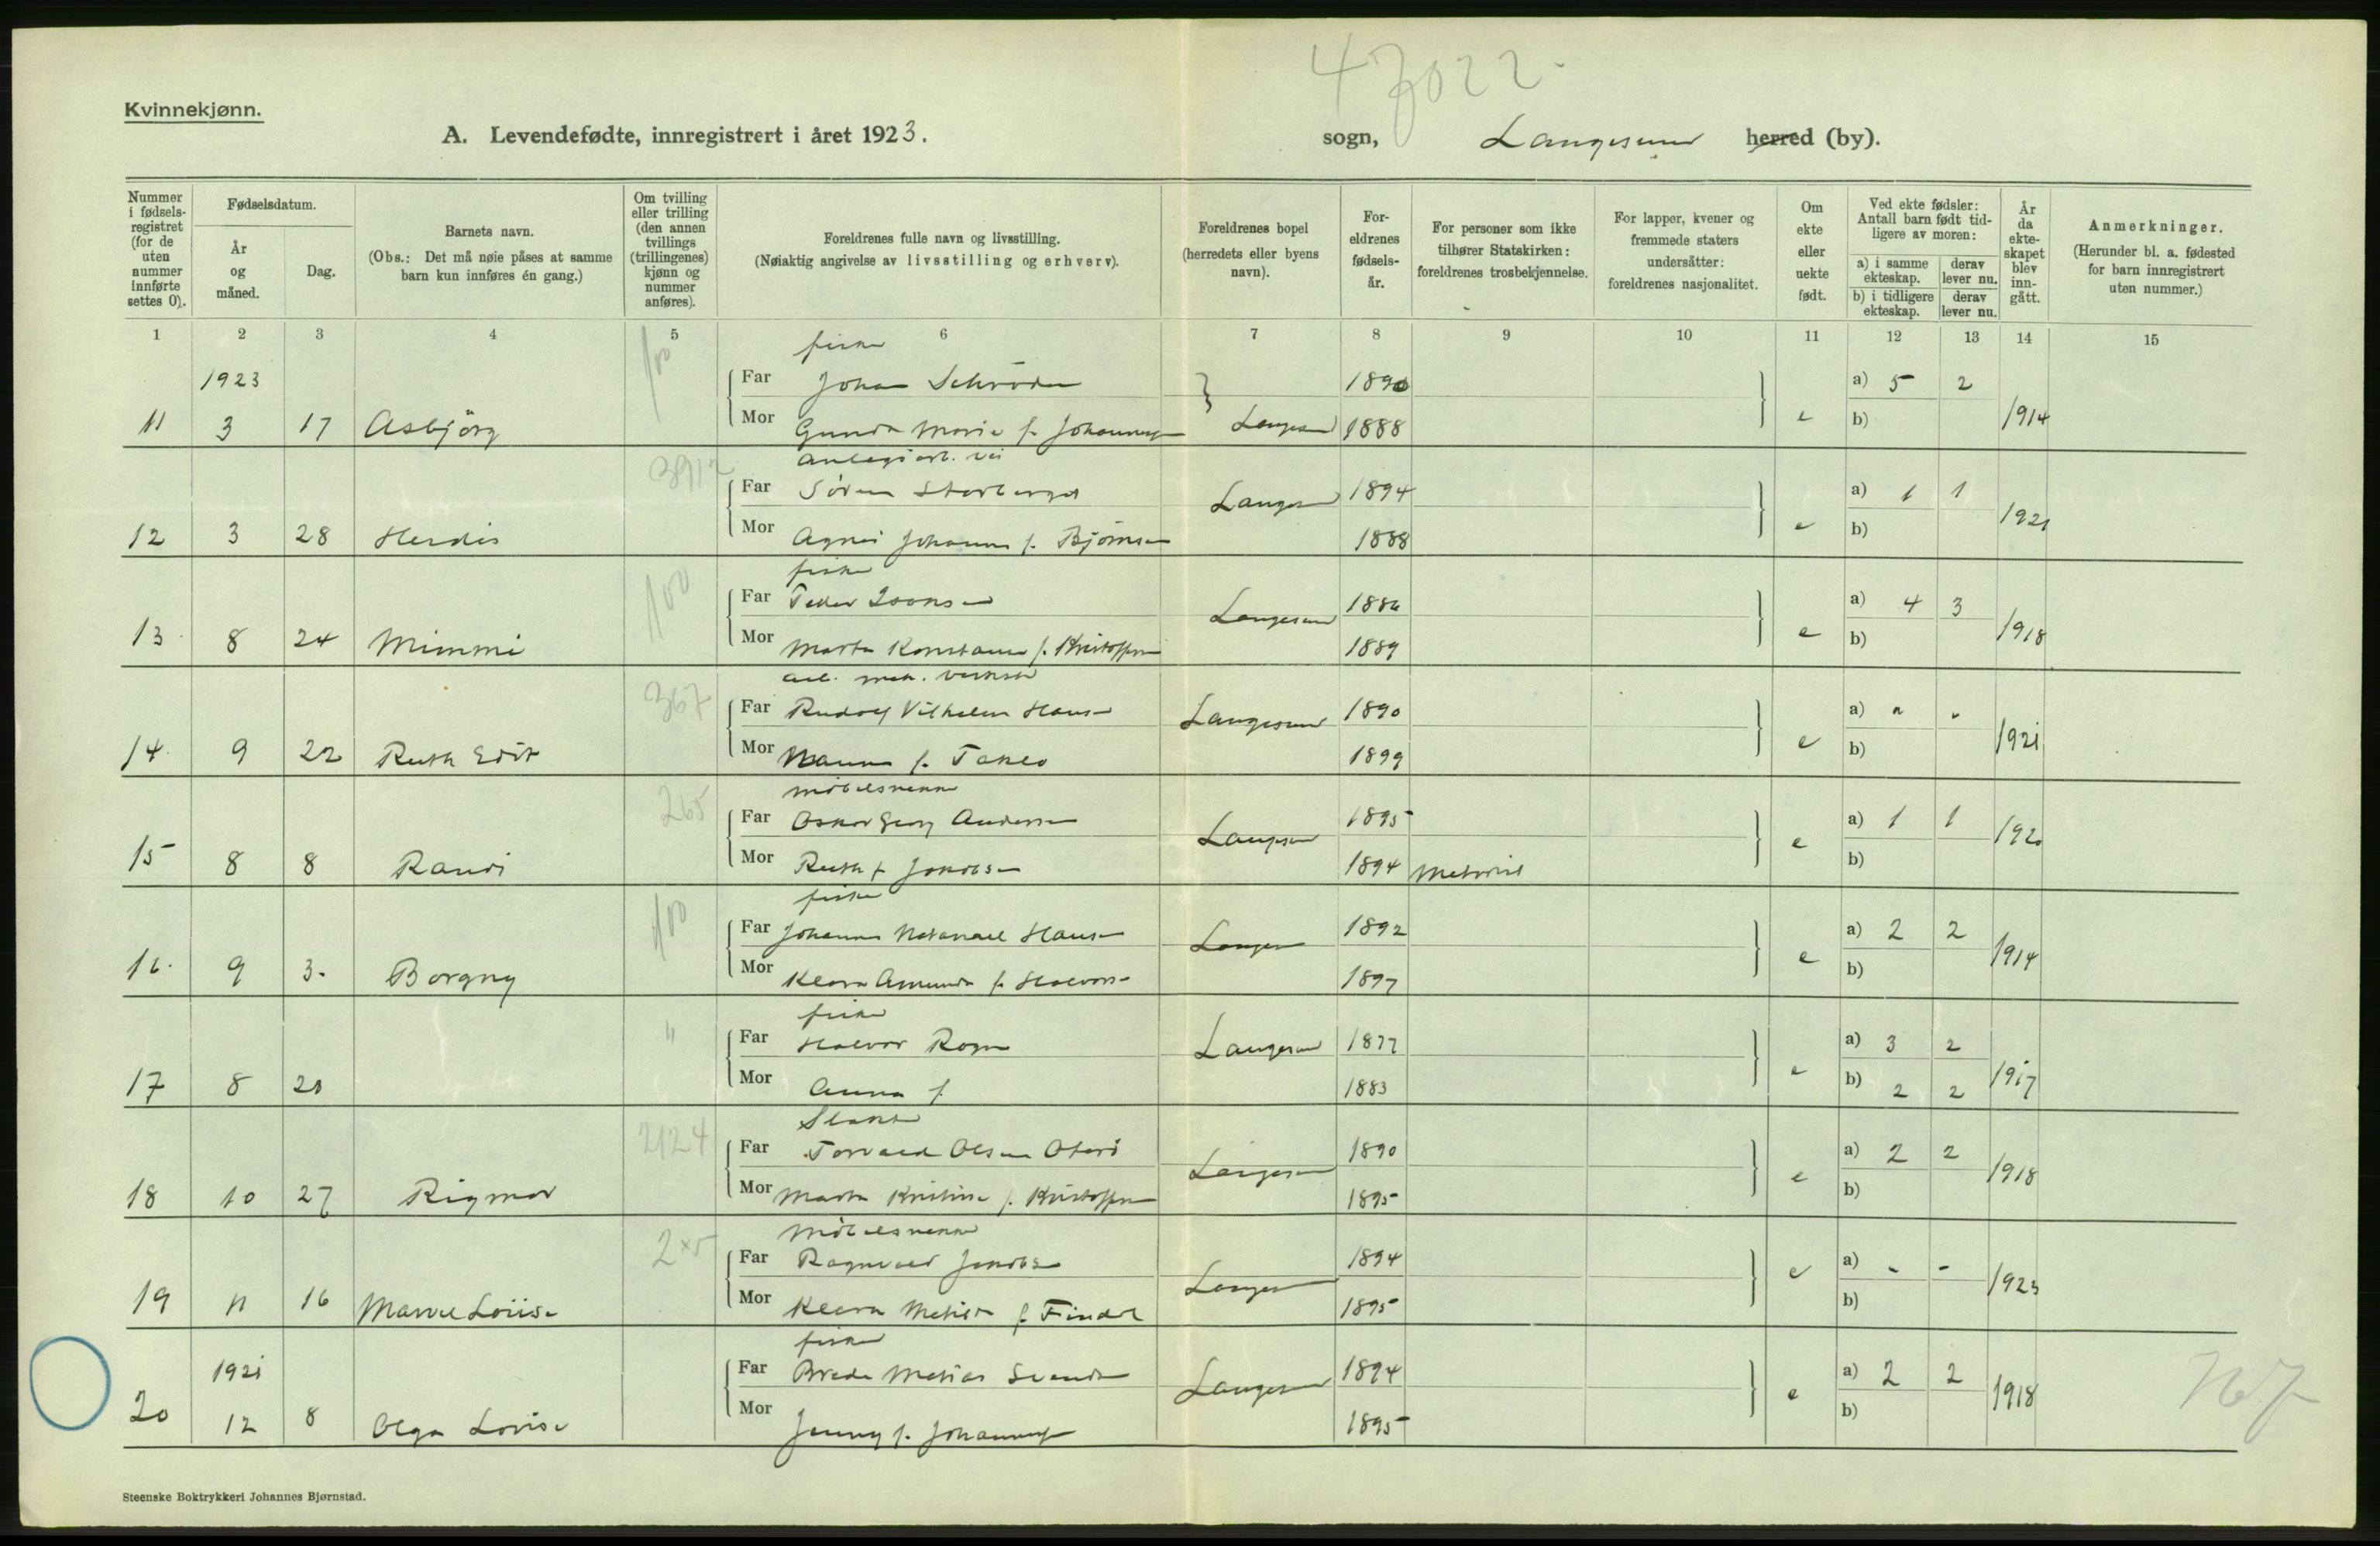 47022.
Kvinnekjønn.
A. Levendefødte, innregistrert i året 1923.
sogn, Langesund herred (by).
Nummer i fødselsregistret (for de uten nummer innførte settes 0).
Fødselsdatum.
År og måned.
Dag.
Barnets navn.
(Obs.: Det må nøie påses at samme barn kun innføres én gang.)
Om tvilling eller trilling (den annen tvillings (trillingenes) kjønn og nummer anføres).
Foreldrenes fulle navn og livsstilling.
(Nøiaktig angivelse av livsstilling og erhverv).
Foreldrenes bopel (herredets eller byens navn).
Foreldrenes fødselsår.
For personer som ikke tilhører Statskirken: foreldrenes trosbekjennelse.
For lapper, kvener og fremmede staters undersåtter: foreldrenes nasjonalitet.
Om ekte eller uekte født.
Ved ekte fødsler: Antall barn født tidligere av moren:
a) i samme ekteskap. derav lever nu.
b) i tidligere ekteskap. derav lever nu.
År da ekteskapet blev inngått.
Anmerkninger.
(Herunder bl. a. fødested for barn innregistrert uten nummer.)
1 2 3 4 5 6 7 8 9 10 11 12 13 14 15
100 fisker
1923 Far Johan Schrøder 1890 a) 5 2
11 3 17 Asbjörg Mor Gunda Marie f. Johannesen Langesund 1888 e b) 1914
3912 Anlegsarb. vei
Far Søren Storberget Langesund 1894 a) 1 1
12 3 28 Herdis Mor Agnes Johanne f. Bjørnsen 1888 e b) 1921
100 fisker
Far Peder Isaksen Langesund 1886 a) 4 3
13 8 24 Mimmi Mor Marta Konstanse f. Kristoffersen 1889 e b) 1918
367 arb. mek. verksted
Far Rudolf Vilhelm Hansen Langesund 1890 a) " "
14 9 22 Ruth Edit Mor f. 1899 e b) 1921
265 möbelsnekker
Far Oskar Georg Andersen Langesund 1895 a) 1 1
15 8 8 Randi Mor Ruth f. Jakobsen 1894 Metodist e b) 1920
100 fisker
Far Johannes Natanael Hansen Langesund 1892 a) 2 2
16. 9 3. Borgny Mor Klara Amunda f. Halvorsen 1897 e b) 1914
" fisker
Far Halvor Langesund 1877 a) 3 2
17 8 20 Mor Anna f. 1883 e b) 2 2 1917
2124 Slakter
Far Torvald Olsen Langesund 1890 a) 2 2
18 10 27 Rigmor Mor Marta Kristine f. Kristoffersen 1895 e b) 1918
2x5 Möbelsnekker
Far Ragnvald Jakobsen Langesund 1894 a) - -
19 11 16 Louise Mor Klara f. Findal 1895 e b) 1923
fisker
1921 Far Brede Matias Langesund 1894 a) 2 2
20 12 8 Olga Lovise Mor Jenny f. Johannesen 1895 e b) 1918
Steenske Boktrykkeri Johannes Bjørnstad.